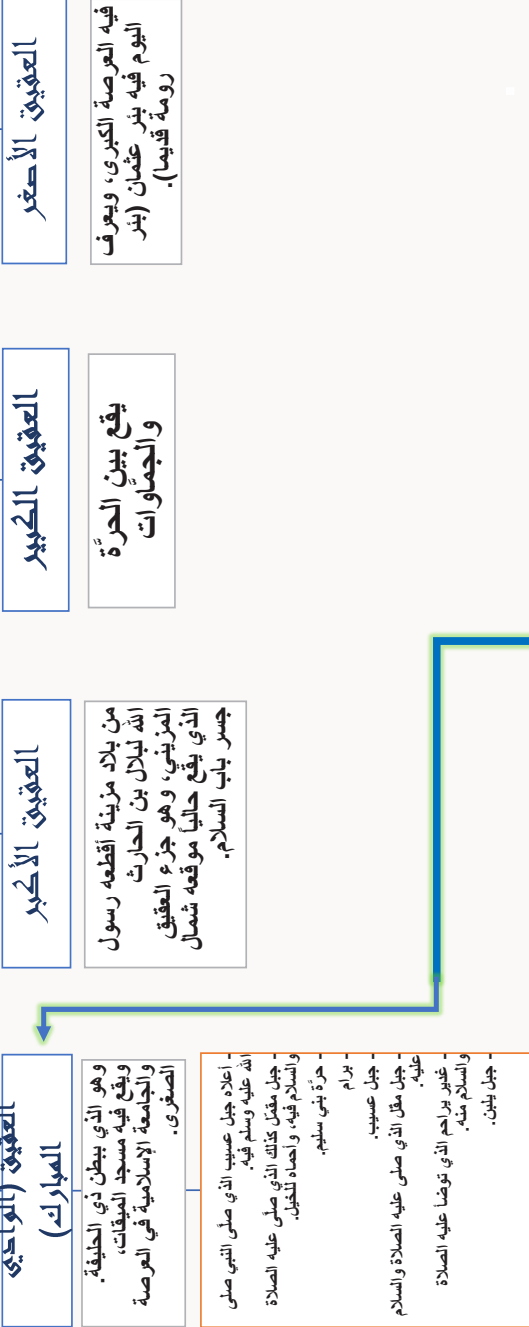 العقيق الأصغر
فيه العرصة الكبرى، ويعرف
اليوم فيه بئر عثمان (بئر
رومة قديما).
العقيق الكبير
يقع بين الحرَّة
والجمَّاوات
العقيق الأكبر
من بلاد مزينة أقطعه رسول
الله لبلال بن الحارث
المزيني، وهو جزء العقيق
الذي يقع حالياً موقعه شمال
جسر باب السلام.
العقيق (الوادي
المبارك)
وهو الذي ببطن ذي الحليفة.
ويقع فيه مسجد الميقات،
والجامعة الإسلامية في العرصة
الصغرى.
- أعلاه جبل عسيب الذي صلَّى النبي صلى
الله عليه وسلم فيه.
- جبل مقمّل كذلك الذي صلَّى عليه الصلاة
والسلام فيه، وأحماه للخيل.
- حرَّة بني سليم.
- برام
- جبل عسيب.
- جبل مقل الذي صلى عليه الصلاة والسلام
عليه.
- غدير يراجم الذي توضأ عليه الصلاة
والسلام منه.
- جبل يلبن.